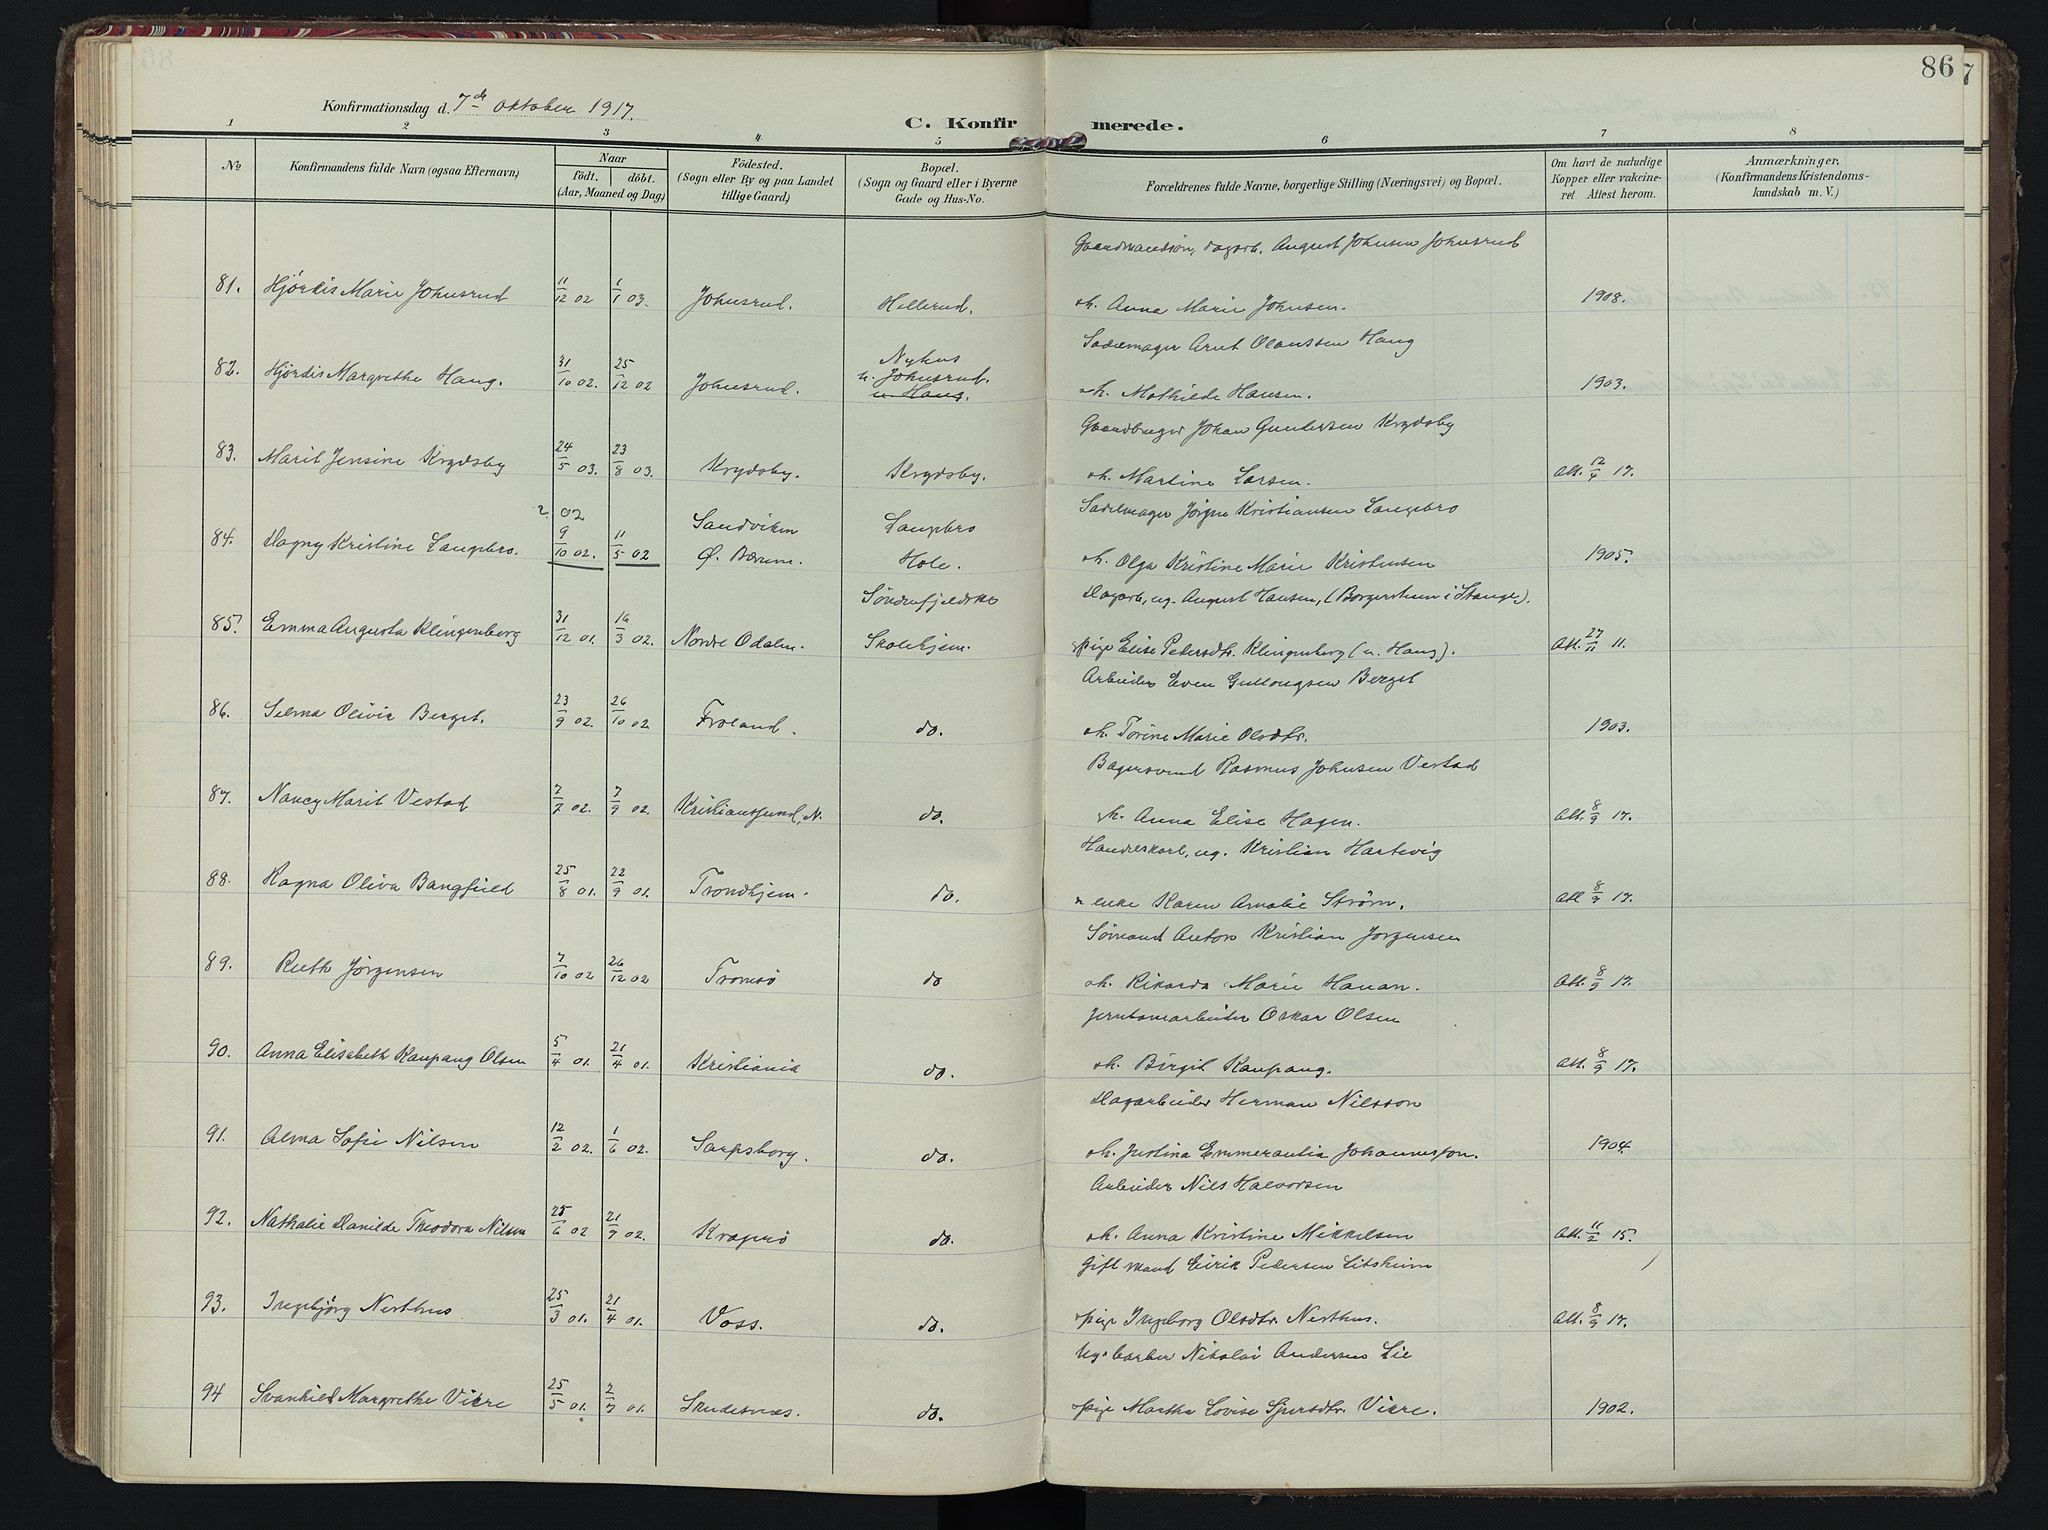 86
7
Konfirmationsdag d. 7de Oktober 1917.
C. Konfirmerede.
1 2 3 4 5 6 7 8
No
Konfirmandens fulde Navn (ogsaa Efternavn)
Naar
födt. döbt.
(Aar, Maaned og Dag)
Födested.
(Sogn eller By og paa Landet
tillige Gaard)
Bopæl.
(Sogn og Gaard eller i Byerne
Gade og Hus-No.
Forældrenes fulde Navne, borgerlige Stilling (Næringsvei) og Bopæl.
Om havt de naturlige
Kopper eller vakcine-
ret. Attest herom.
Anmærkninger,
(Konfirmandens Kristendoms-
kundskab m. V.)
Gaardmandssøn, dagarb. August Johnsen Johnsrud
81. Hjørdis Marie Johnsrud 11/12 02 1/1 03. Johnsrud. Hellerud. oh. Anna Marie Johnsen. 1908.
Sadelmager Arnt Olaussen Haug
82. Hjørdis Margrethe Haug. 31/10 02. 25/12 02 Johnsrud. Nyhus u. Johnsrud. u. Haug. oh. Mathilde Hansen. 1903.
Gaardbruger Johan Gundersen Krydsby
83. Marit Jensine Krydsby 24/5 03. 23/8 03. Krydsby. Krydsby. oh. Martine Larsen. Att. 12/4 17.
Sadelmager Jørgen Kristiansen Langebro
84. Dagny Kristine Langebro. ? 02 9/10 02. 11/5 02 Sandviken Ø. Bærum. Langebro Hole. oh. Olga Kristine Marie Kristensen 1905.
Dagarb., ug. August Hansen, (Borgerstuen i Stange).
85. Emma Augusta Klingenberg 31/12 01. 16/3 02. Nordre Odalen. Søndenfjeldske Skolehjem. pige Elise Pedersdtr. Klingenberg (u. Haug). Att. 27/11 11.
Arbeider Even Gullongsen Berget
86. Selma Olivia Berget. 23/9 02. 26/10 02. Froland. do. oh. Torine Marie Olsdtr. 1903.
Bagersvend Rasmus Johnsen Vestad
87. Nancy Marit Vestad 7/7 02. 7/9 02. Kristianssund, N. do. h. Anna Elise Hagen. Att. 8/9 17.
Handelskarl, ug. Kristian Hartvig
88. Ragna Oliva Bangfield 25/8 01. 22/9 01. Trondhjem. do. enke Karen Amalie Strøm. Att 8/9 17.
Sømand Anton Kristian Jørgensen
89. Ruth Jørgensen 7/10 02 26/12 02 Tromsø do oh. Rikarda Marie Hanan. Att. 8/9 17.
Jerntomarbeider Oskar Olsen
90. Anna Elisabeth Kaupang Olsen 5/4 01. 21/4 01. Kristiania do. oh. Birgit Kaupang. Att. 8/9 17.
Dagarbeider Herman Nilsson
91. Alma Sofie Nilsen 12/2 02. 1/6 02. Sarpsborg. do. oh. Justina Emmerantia Johannesson. 1904.
Arbeider Nils Halvorsen
92. Nathalie Danilde Theodora Nilsen 25/6 02 21/9 02. Kragerø do. oh. Anna Kristine Mikkelsen Att. 11/2 15.
Gift mand Eirik Pedersen Litsheim
93. Ingebjørg Nesthus 25/3 01. 21/4 01. Voss. do. pige Ingeborg Olsdtr. Nesthus. Att. 8/9 17.
Ug. barber Nikolai Andersen Lie
94 Svanhild Margrethe Vikre 25/5 01. 2/7 01. Skudesnæs. do. pige Martha Lovise Sjursdtr. Vikre. 1902.